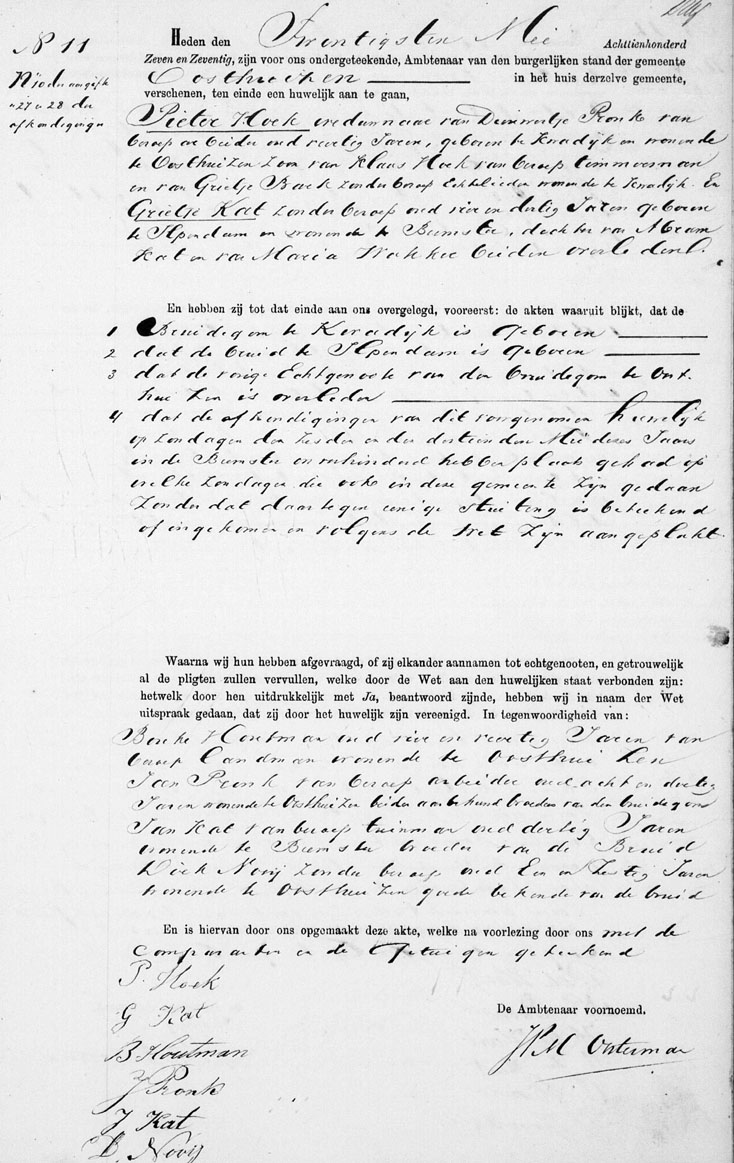 N° 11
27 en 28 der
afkondigingen
Heden den Twintigsten Mei Achttienhonderd
Zeven en Zeventig, zijn voor ons ondergeteekende, Ambtenaar van den burgerlijken stand der gemeente
Oosthuizen in het huis derzelve gemeente,
verschenen, ten einde een huwelijk aan te gaan,
Pieter Hoek weduwnaar van Pronk van
beroep oud veertig Jaren, geboren te Kwadijk en wonende
te Oosthuizen Zoon van Klaas Hoek van beroep timmerman
en van Grietje Zonder beroep Echtelieden wonende te Kwadijk. En
Grietje Kat Zonder beroep oud vier en dertig Jaren geboren
te Ilpendam en wonende te Beemster, dochter van Abram
Kat en van Maria Wakker beiden overleden.
En hebben zij tot dat einde aan ons overgelegd, vooreerst: de akten waaruit blijkt, dat de
1 Bruidegom te Kwadijk is geboren
2 dat de bruid te Ilpendam is geboren
3 dat de vorige Echtgenoote van den bruidegom te Oost
huizen is overleden
4 dat de afkondigingen van dit voorgenomen huwelijk
op Zondagen den zesden en den dertienden Mei dezes Jaars
in de Beemster onverhinderd hebben plaats gehad op
welke Zondagen die ook in deze gemeente zijn gedaan
Zonder dat daartegen eenige stuiting is beteekend
of ingekomen en volgens de Wet Zijn aangeplakt.
Waarna wij hun hebben afgevraagd, of zij elkander aannamen tot echtgenooten, en getrouwelijk
al de pligten zullen vervullen, welke door de Wet aan den huwelijken staat verbonden zijn:
hetwelk door hen uitdrukkelijk met Ja, beantwoord zijnde, hebben wij in naam der Wet
uitspraak gedaan, dat zij door het huwelijk zijn vereenigd. In tegenwoordigheid van:
Houtman oud vier en veertig Jaren van
beroep Landman wonende te Oosthuizen
Jan Pronk van beroep arbeider oud acht en dertig
Jaren wonende te Oosthuizen beiden aanbehuwd broeders van den bruidegom
Jan Kat van beroep tuinman oud dertig Jaren
wonende te Beemster broeder van de Bruid
Nooij Zonder beroep oud Een en Zestig Jaren
wonende te Oosthuizen goede bekende van de bruid
En is hiervan door ons opgemaakt deze akte, welke na voorlezing door ons met de
Comparanten en de Getuigen geteekend
P. Hoek
G Kat
De Ambtenaar voornoemd,
B Houtman
J Pronk
J Kat
D. Nooij